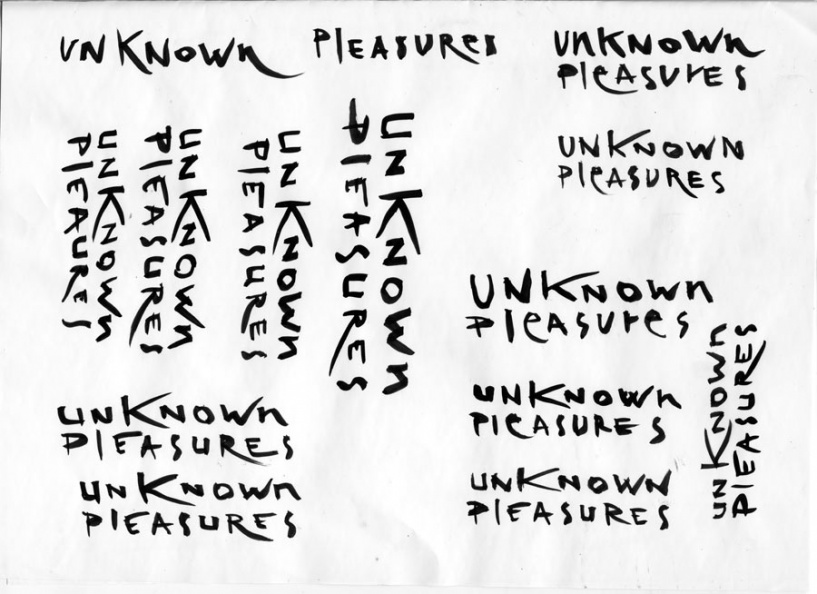 UNKNOWn PlEASUREs
UnKNOWn
PleASUrES
UNKNOWN
PleASURES
UNKNOWn
PlEAURES
UNKNOWn
PlEASURES
UNKNOWn
PlEASURES
UNKNOWn
PlEASURES
UNKNOWn
PleASUreS
UNKNOWn
PleASURES
UNKNOWN
PlEASURES
UNKNOWn
PlEASURES
UnKNOWn
PlEASURES
UnKNOWn
PlEASURES